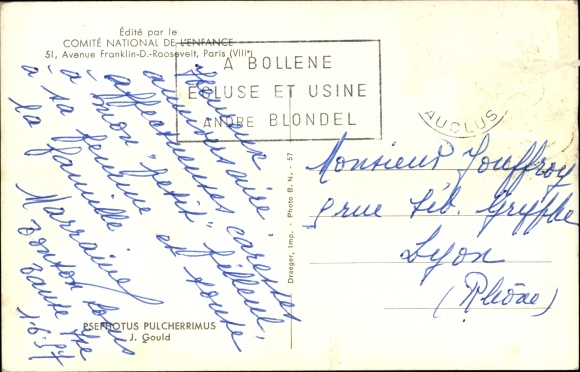 Édité par le
COMITÉ NATIONAL DE L'ENFANCE
51, Avenue Franklin-D.-Roosevelt, Paris (VIIIe)
A BOLLENE
ECLUSE ET USINE
ANDRE BLONDEL
AUCLUS
Heureux
anniversaire
affectueuses caresses
à mon "petit" filleul,
à sa femme et toute
la famille
Marraine
tonton Louis
tante
1.6.57
Draeger, Imp. - Photo B. N. - 57
Monsieur Jouffroy
9 rue Séb. Gryphe
Lyon
(Rhône)
PSEPHOTUS PULCHERRIMUS
J. Gould